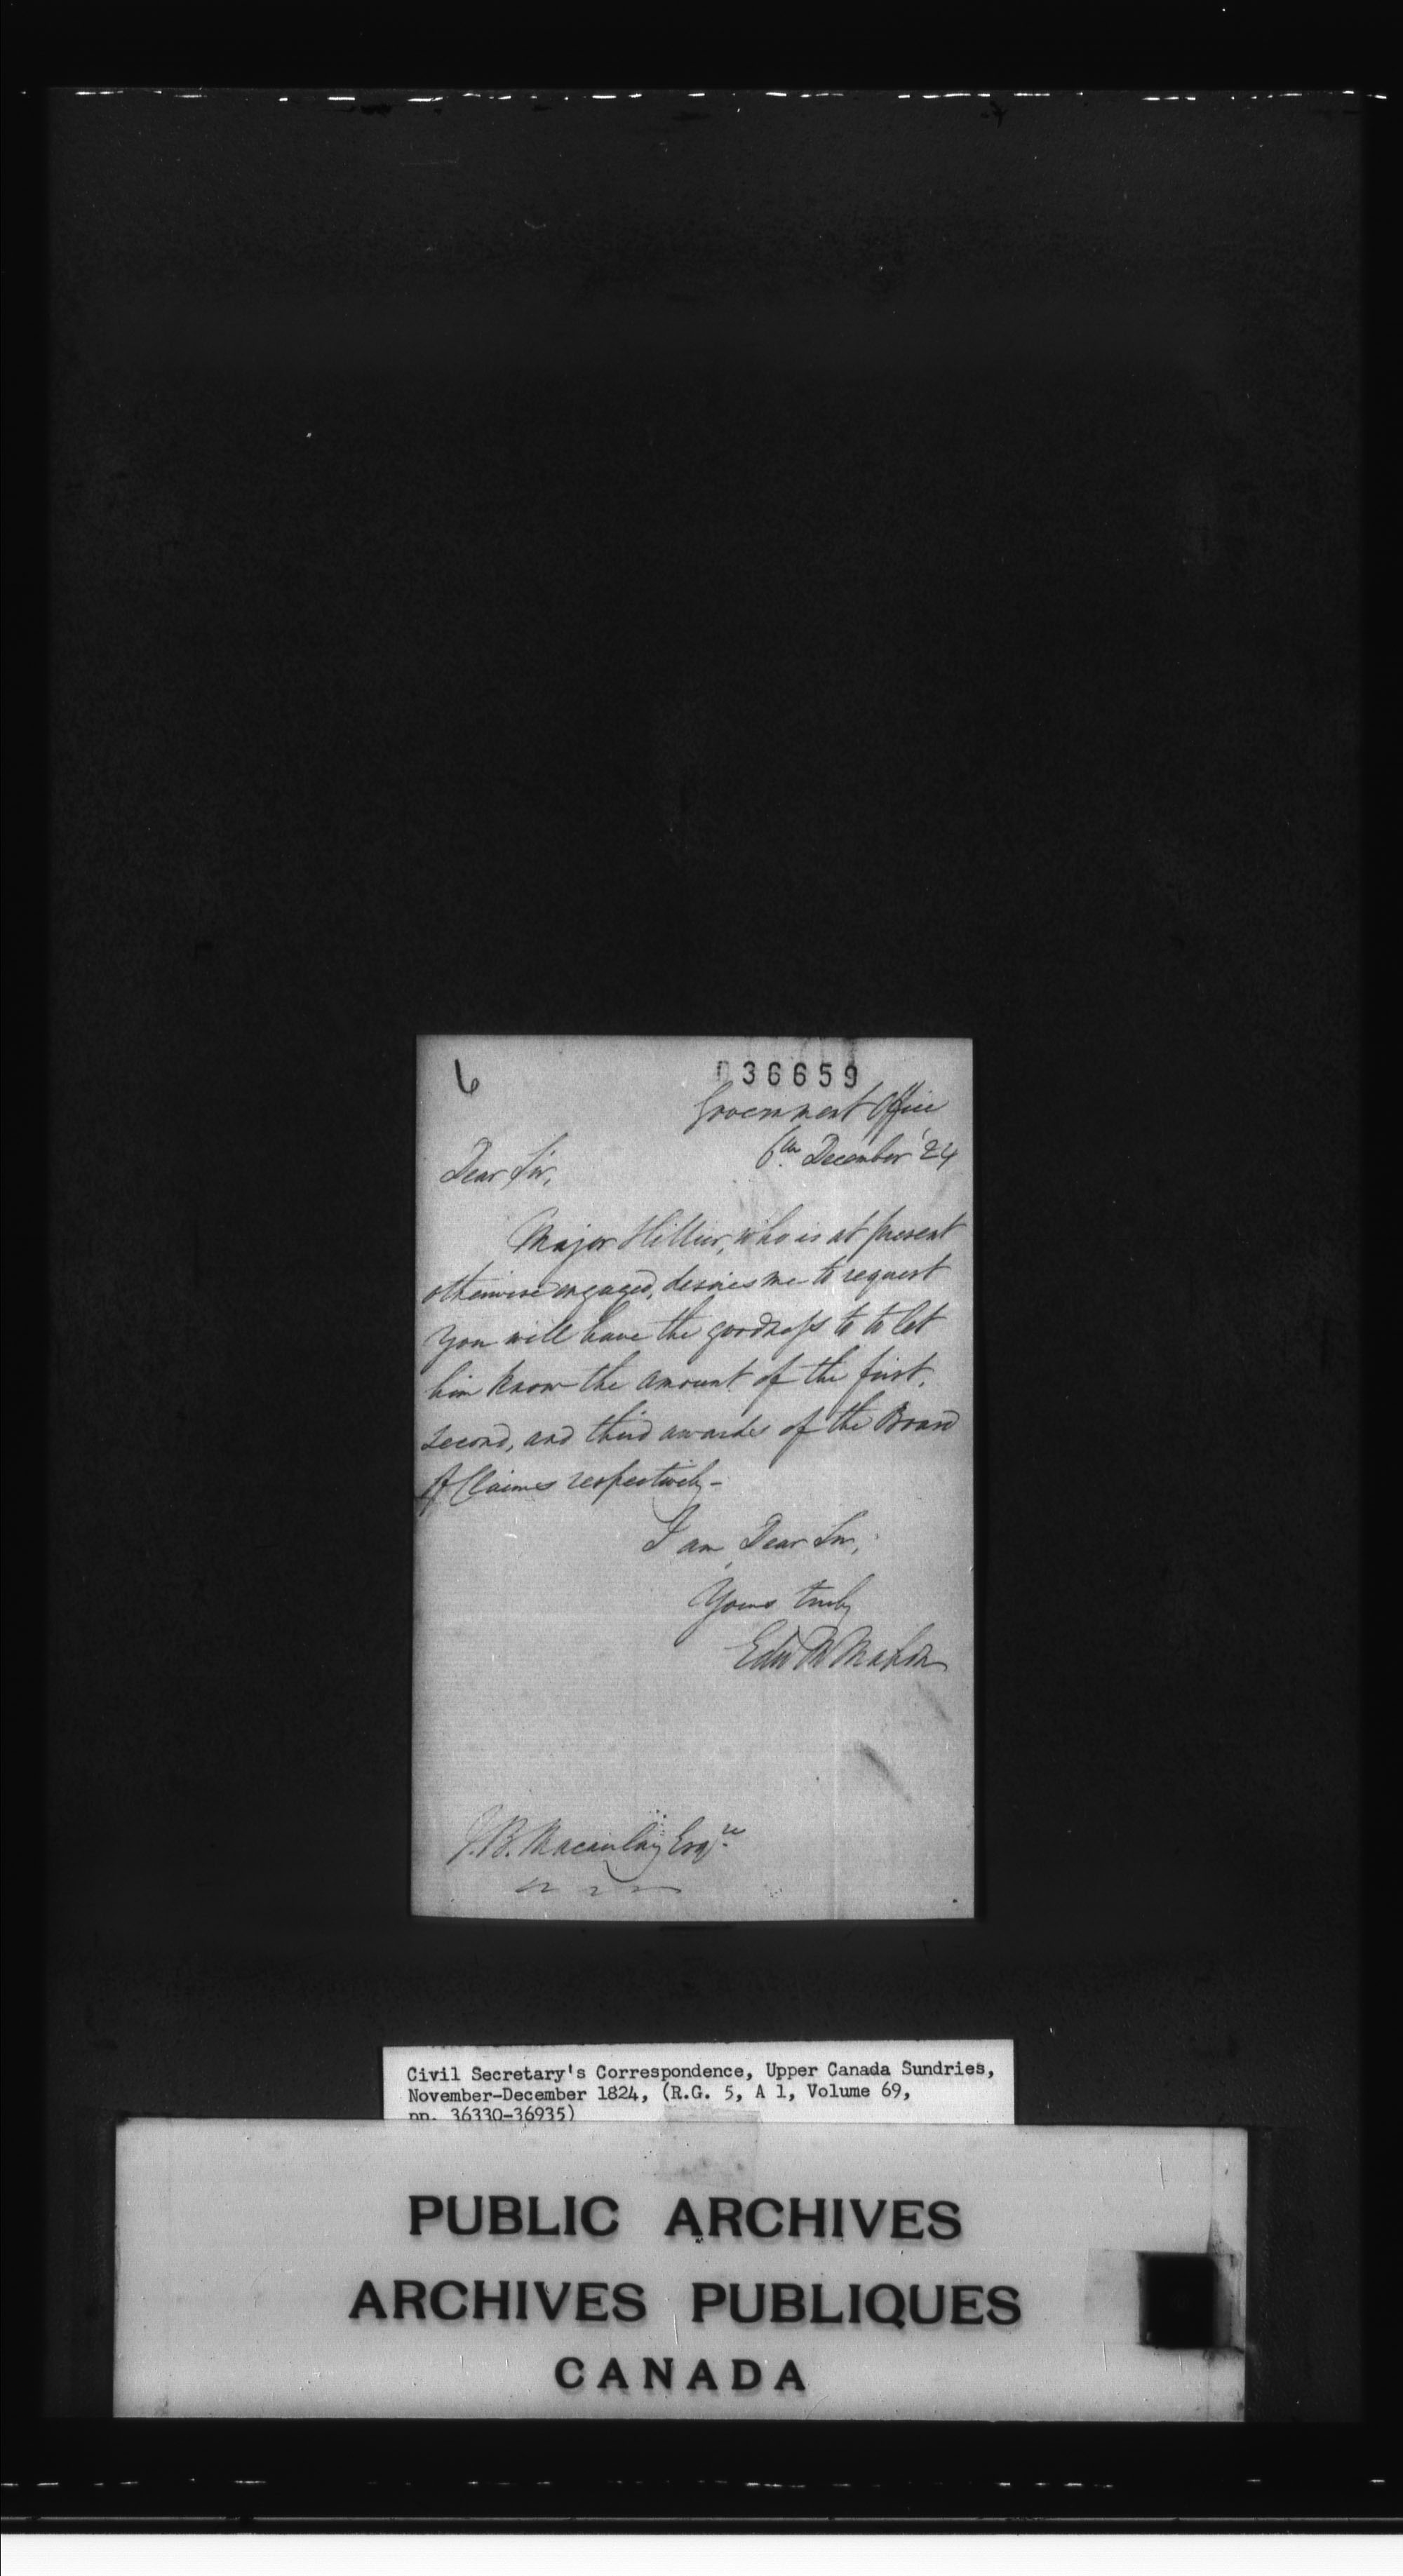 6
036659
Government Office
6th December '24
Dear Sir,
Major Hillier, who is at present
otherwise engaged, desires me to request
you will have the goodness to to let
him know the amount of the first,
second, and third awards of the Board
of Claims respectively -
I am, Dear Sir,
Yours truly
Edw McMahon
J.B. Macaulay Esqre
Civil Secretary's Correspondence, Upper Canada Sundries,
November-December 1824, (R.G. 5, A 1, Volume 69,
pp. 36330-36935)
PUBLIC ARCHIVES
ARCHIVES PUBLIQUES
CANADA